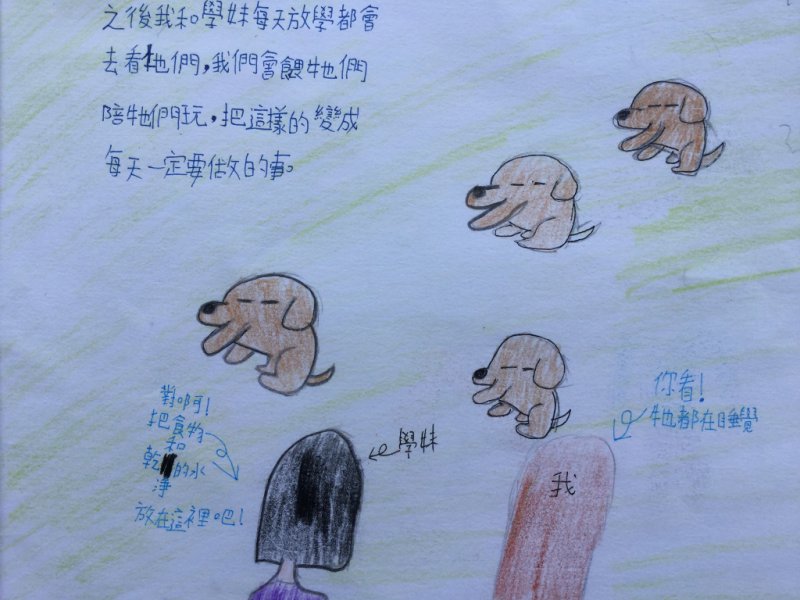 之後我和學妹每天放學都會
去看牠們,我們會餵牠們
陪牠們玩,把這樣的變成
每天一定要做的事。
你看!
牠都在睡覺
對啊!
把食物
和
乾的水
淨
放在這裡吧!
學妹
我